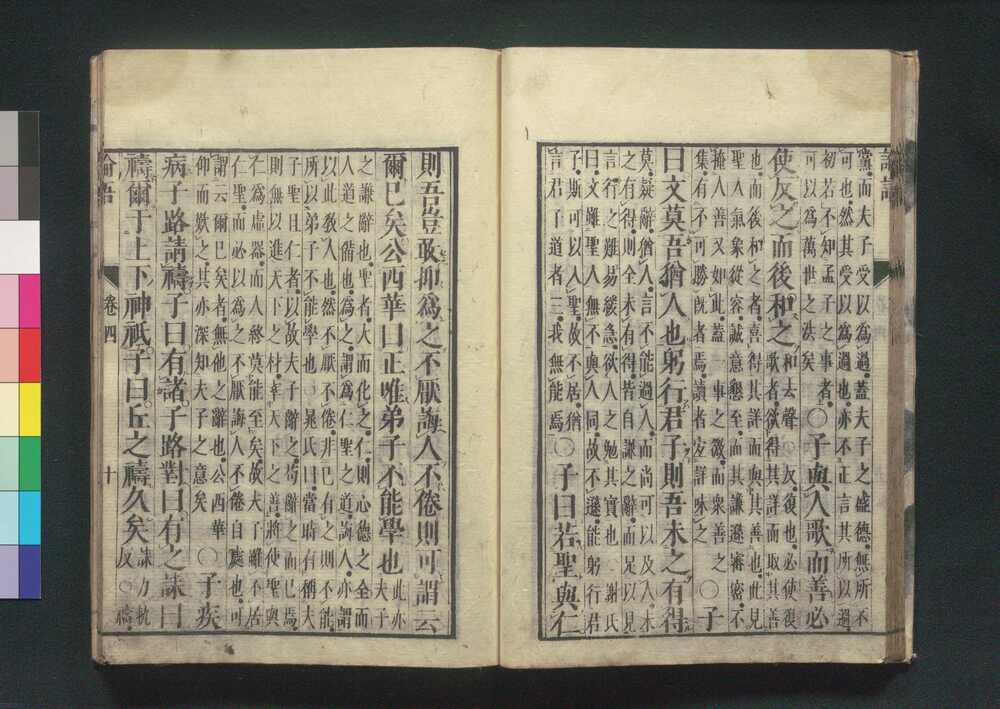 論語
黨。而夫子受以為過。蓋夫子之盛德。無所不
可也。然其受以為過也。亦不正言其所以過。
初若不知孟子之事者。
可以為萬世之法矣
○子與人歌而善必
使反之而後和之
和去聲○反。復也。必使復
歌者。欲得其詳而取其善
也。而後和之者。喜得其詳而與其善也。此見
聖人氣象從容。誠意懇至。而其謙遜審密。不
掩人善又如此。蓋一事之微。而衆善之
集。有不可勝既者焉。讀者宜詳味之
○子
曰文莫吾猶人也躬行君子則吾未之有得
莫。疑辭。猶人。言不能過人。而尚可以及人。未
之有得。則全未有得。皆自謙之辭。而足以見
言行之難易緩急。欲人之勉其實也○謝氏
曰。文雖聖人無不與人同。故不遜。能躬行君
子。斯可以入聖。故不居。猶
言君子道者三。我無能焉
○子曰若聖與仁
則吾豈敢抑為之不厭誨人不倦則可謂云
爾已矣公西華曰正唯弟子不能學也
此亦
夫子
之謙辭也。聖者。大而化之。仁。則心德之全而
人道之備也。為之。謂為仁聖之道。誨人。亦謂
以此教人也。然不厭不倦。非己有之則不能。
所以弟子不能學也○晁氏曰。當時有稱夫
子聖且仁者。以故夫子辭之。苟辭之而已焉。
則無以進天下之材。率天下之善。將使聖與
仁為虛器。而人終莫能至矣。故夫子雖不居
仁聖。而必以為之不厭。誨人不倦自處也。可
謂云爾已矣者。無他之辭也。公西華
仰而歎之。其亦深知夫子之意矣
○子疾
病子路請禱子曰有諸子路對曰有之誄曰
禱爾于上下神祇子曰丘之禱久矣
誄力軌
反○禱。
論語 卷四 十